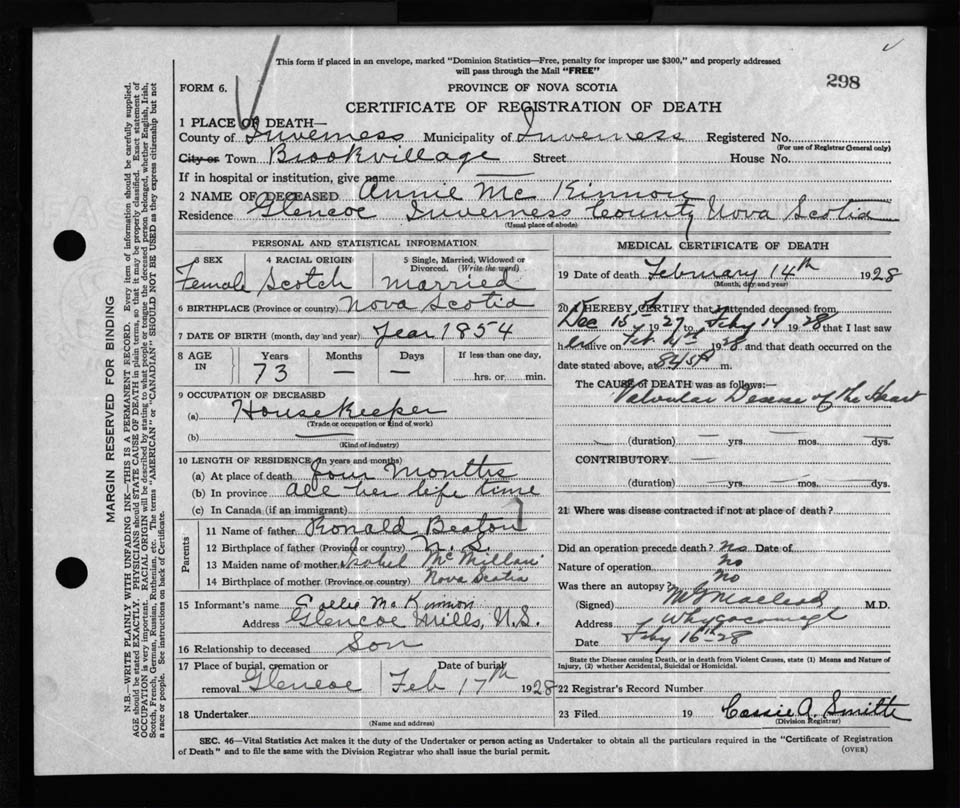 This form if placed in an envelope, marked "Dominion Statistics—Free, penalty for improper use $300," and properly addressed
will pass through the Mail "FREE"
298
FORM 6.
PROVINCE OF NOVA SCOTIA
CERTIFICATE OF REGISTRATION OF DEATH
1 PLACE OF DEATH—
County of Inverness Municipality of Inverness Registered No.
(For use of Registrar General only)
City or Town Brookvillage Street House No.
If in hospital or institution, give name —
2 NAME OF DECEASED Annie Mc Kinnon
Residence Glencoe Inverness County Nova Scotia
(Usual place of abode)
PERSONAL AND STATISTICAL INFORMATION
3 SEX 4 RACIAL ORIGIN 5 Single, Married, Widowed or
Divorced. (Write the word)
Female Scotch Married
6 BIRTHPLACE (Province or country) Nova Scotia
7 DATE OF BIRTH (month, day and year) Year 1854
8 AGE IN Years Months Days If less than one day,
73 — — hrs. or min.
9 OCCUPATION OF DECEASED
(a) Housekeeper
(Trade or occupation or kind of work)
(b) —
(Kind of industry)
10 LENGTH OF RESIDENCE (in years and months)
(a) At place of death four Months
(b) In province all her life time
(c) In Canada (if an immigrant)
Parents
11 Name of father Ronald Beaton
12 Birthplace of father (Province or country) N. S.
13 Maiden name of mother Isobel McMillan
14 Birthplace of mother (Province or country) Nova Scotia
15 Informant's name Mc Kinnon
Address Glencoe Mills, N.S.
16 Relationship to deceased Son
17 Place of burial, cremation or Date of burial
removal Glencoe Feb 17th 1928
18 Undertaker
(Name and address)
MEDICAL CERTIFICATE OF DEATH
19 Date of death February 14th 1928
(Month, day and year)
20 I HEREBY CERTIFY that I attended deceased from
Dec 15th 1927 to Feby 14 1928 that I last saw
h er alive on Feb. 1928 and that death occurred on the
date stated above, at m.
The CAUSE of DEATH was as follows:—
Valvular Disease of the Heart
(duration) — yrs. — mos. — dys.
CONTRIBUTORY —
(duration) — yrs. — mos. — dys.
21 Where was disease contracted if not at place of death?
Did an operation precede death? no Date of
Nature of operation no
Was there an autopsy? no
(Signed) Macleod M.D.
Address Whycocomagh
Date Feby 16th 28
State the Disease causing Death, or in death from Violent Causes, state (1) Means and Nature of
Injury, (2) whether Accidental, Suicidal or Homicidal.
22 Registrar's Record Number
23 Filed 19 Cassie A. Smith
(Division Registrar)
SEC. 46—Vital Statistics Act makes it the duty of the Undertaker or person acting as Undertaker to obtain all the particulars required in the "Certificate of Registration
of Death" and to file the same with the Division Registrar who shall issue the burial permit.
(OVER)
MARGIN RESERVED FOR BINDING
N.B.—WRITE PLAINLY WITH UNFADING INK—THIS IS A PERMANENT RECORD. Every item of information should be carefully supplied.
AGE should be stated EXACTLY. PHYSICIANS should STATE CAUSE OF DEATH in plain terms, so that it may be properly classified. Exact statement of
OCCUPATION is very important. RACIAL ORIGIN will be described by stating to what people or tongue the deceased person belonged, whether English, Irish,
Scotch, French, German, Russian, Ruthenian, etc. The terms "AMERICAN" or "CANADIAN" SHOULD NOT BE USED as they express citizenship but not
a race or people. See instructions on back of Certificate.